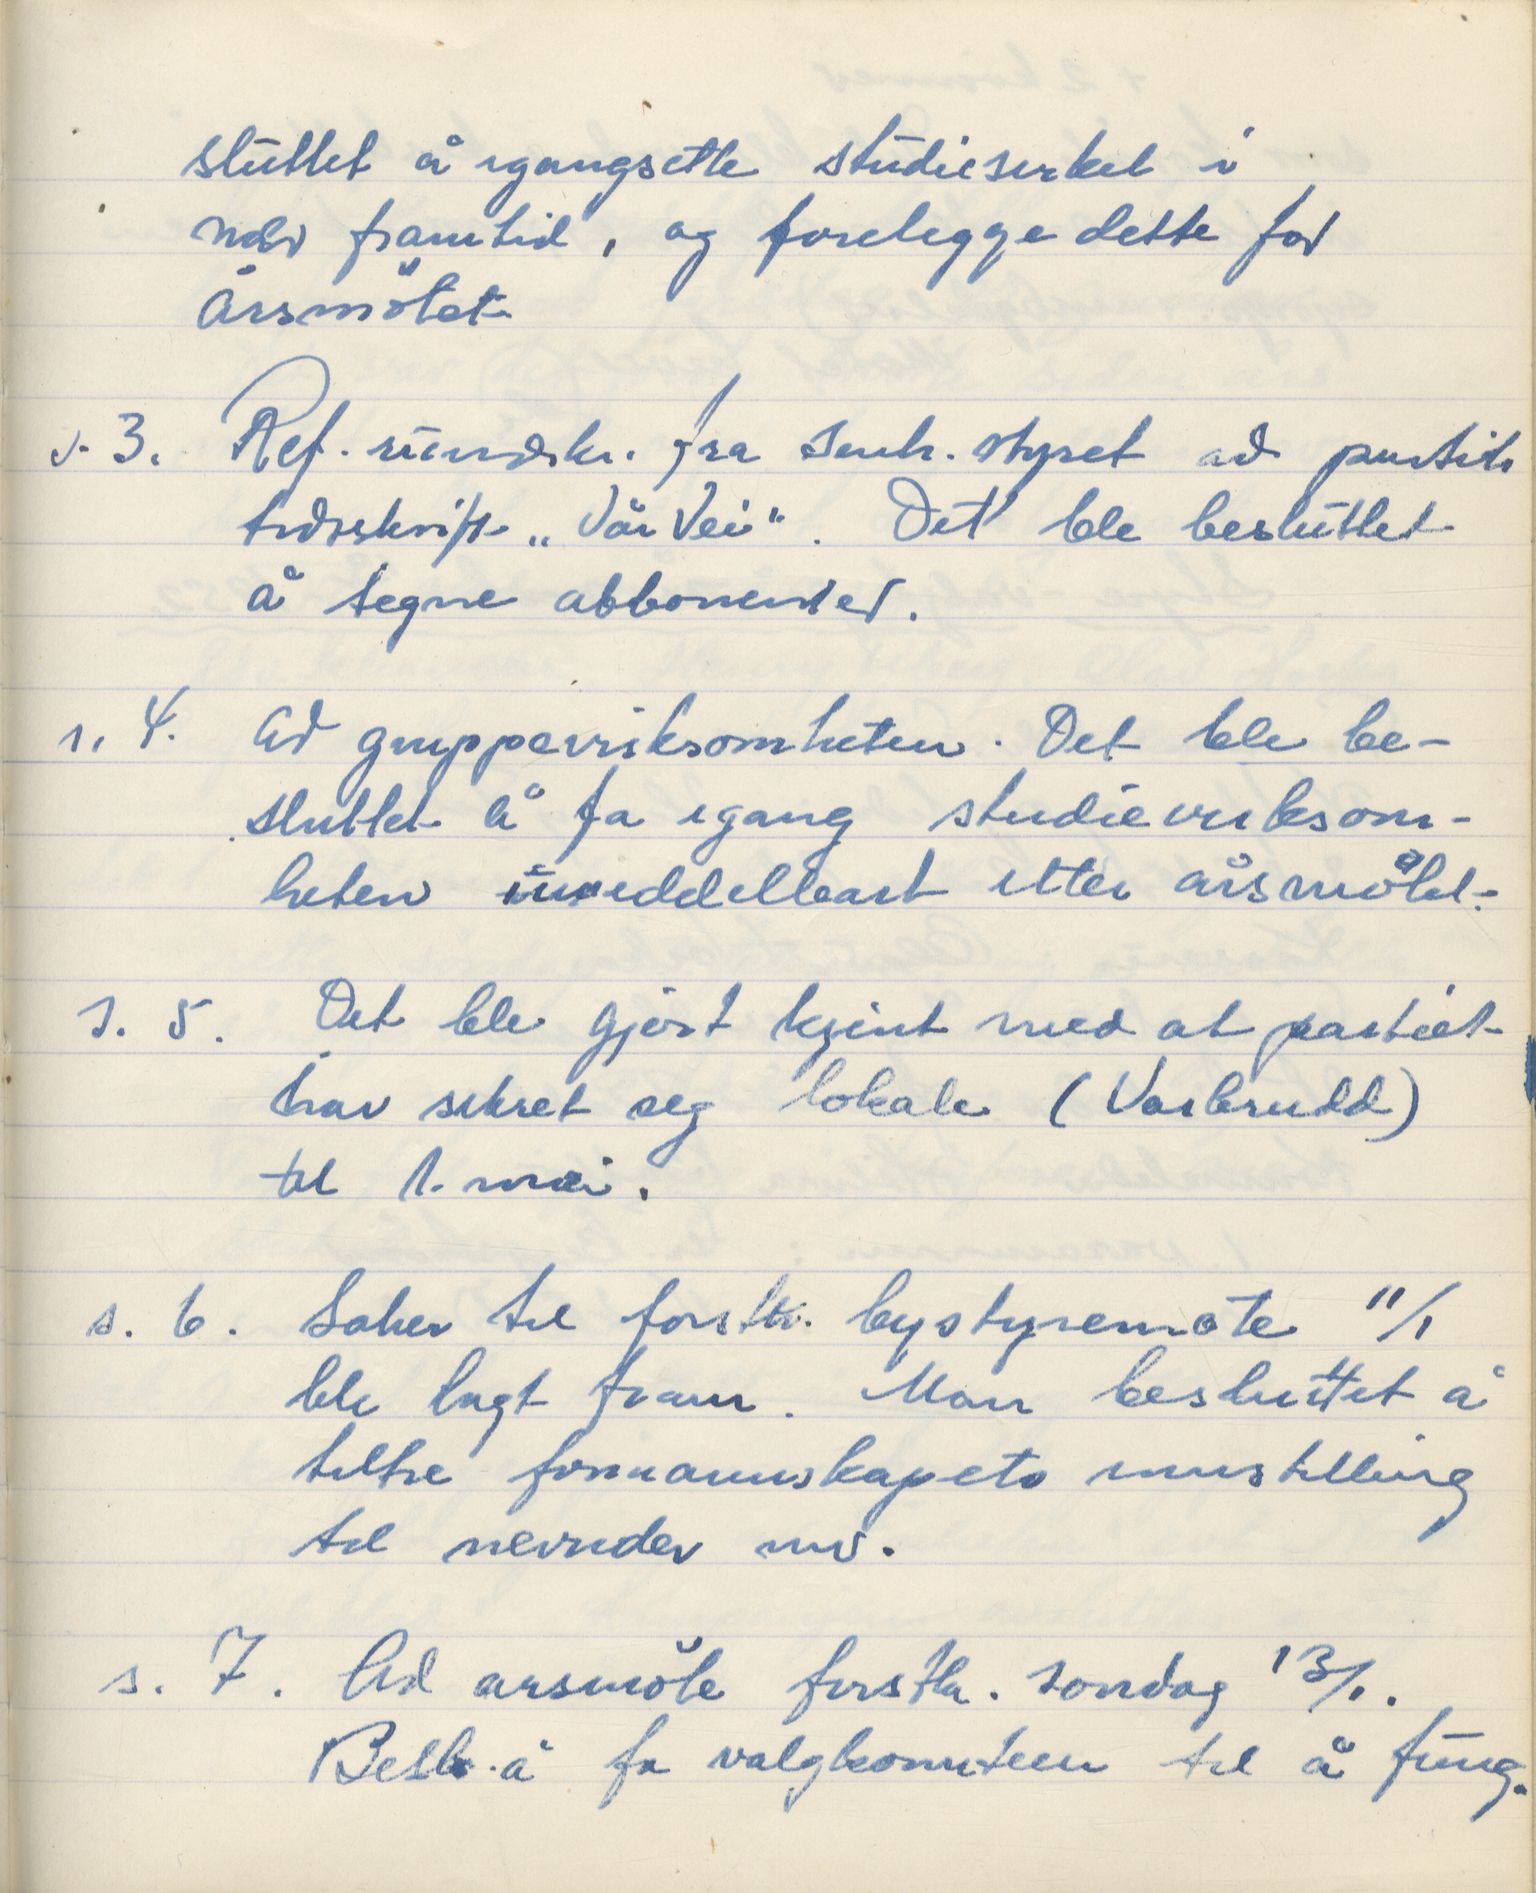 sluttet å igangsette studiesirkel i
nær framtid, og forelegge dette for
årsmötet
s. 3. Ref. rundskr. fra sentr. styret ad partiets
tidsskrift „Vår Vei". Det ble besluttet
å tegne abbonenter.
s. 4. Ad gruppevirksomheten. Det ble be-
sluttet å fa igang studievirksom-
heten umiddelbart etter årsmötet.
s. 5. Det ble gjort kjent med at partiet
har sikret seg lokale (Vårbrudd)
til 1. mai.
s. 6. Saker til forstk. bystyremøte 11/1
ble lagt fram. Man besluttet å
tiltre formannskapets innstilling
til nevnder mv.
s. 7. Ad arsmöte forstk. sondag 13/1.
Besl. å fa valgkomiteen til å fung.